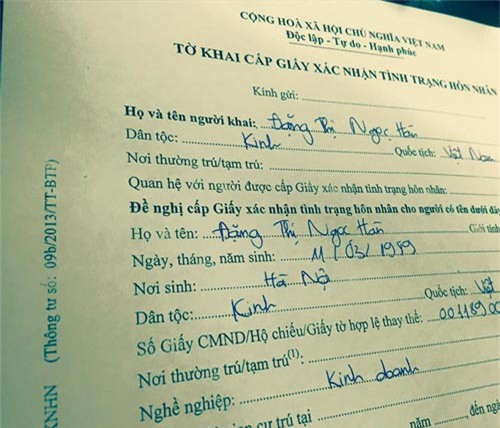 CỘNG HOÀ XÃ HỘI CHỦ NGHĨA VIỆT NAM
Độc lập - Tự do - Hạnh phúc
TỜ KHAI CẤP GIẤY XÁC NHẬN TÌNH TRẠNG HÔN NHÂN
Kính gửi:
Họ và tên người khai: Đặng Thị Ngọc Hân
Dân tộc: Kinh Quốc tịch: Việt Nam
Nơi thường trú/tạm trú:
Quan hệ với người được cấp Giấy xác nhận tình trạng hôn nhân:
Đề nghị cấp Giấy xác nhận tình trạng hôn nhân cho người có tên dưới đây
Họ và tên: Đặng Thị Ngọc Hân Giới tính
Ngày, tháng, năm sinh: 11/03/1989
Nơi sinh: Hà Nội
Dân tộc: Kinh Quốc tịch: Việt
Số Giấy CMND/Hộ chiếu/Giấy tờ hợp lệ thay thế: 0011890
Nơi thường trú/tạm trú(1):
Nghề nghiệp: Kinh doanh
cư trú tại năm đến ng
KNHN (Thông tư số: 09b/2013/TT-BTP)